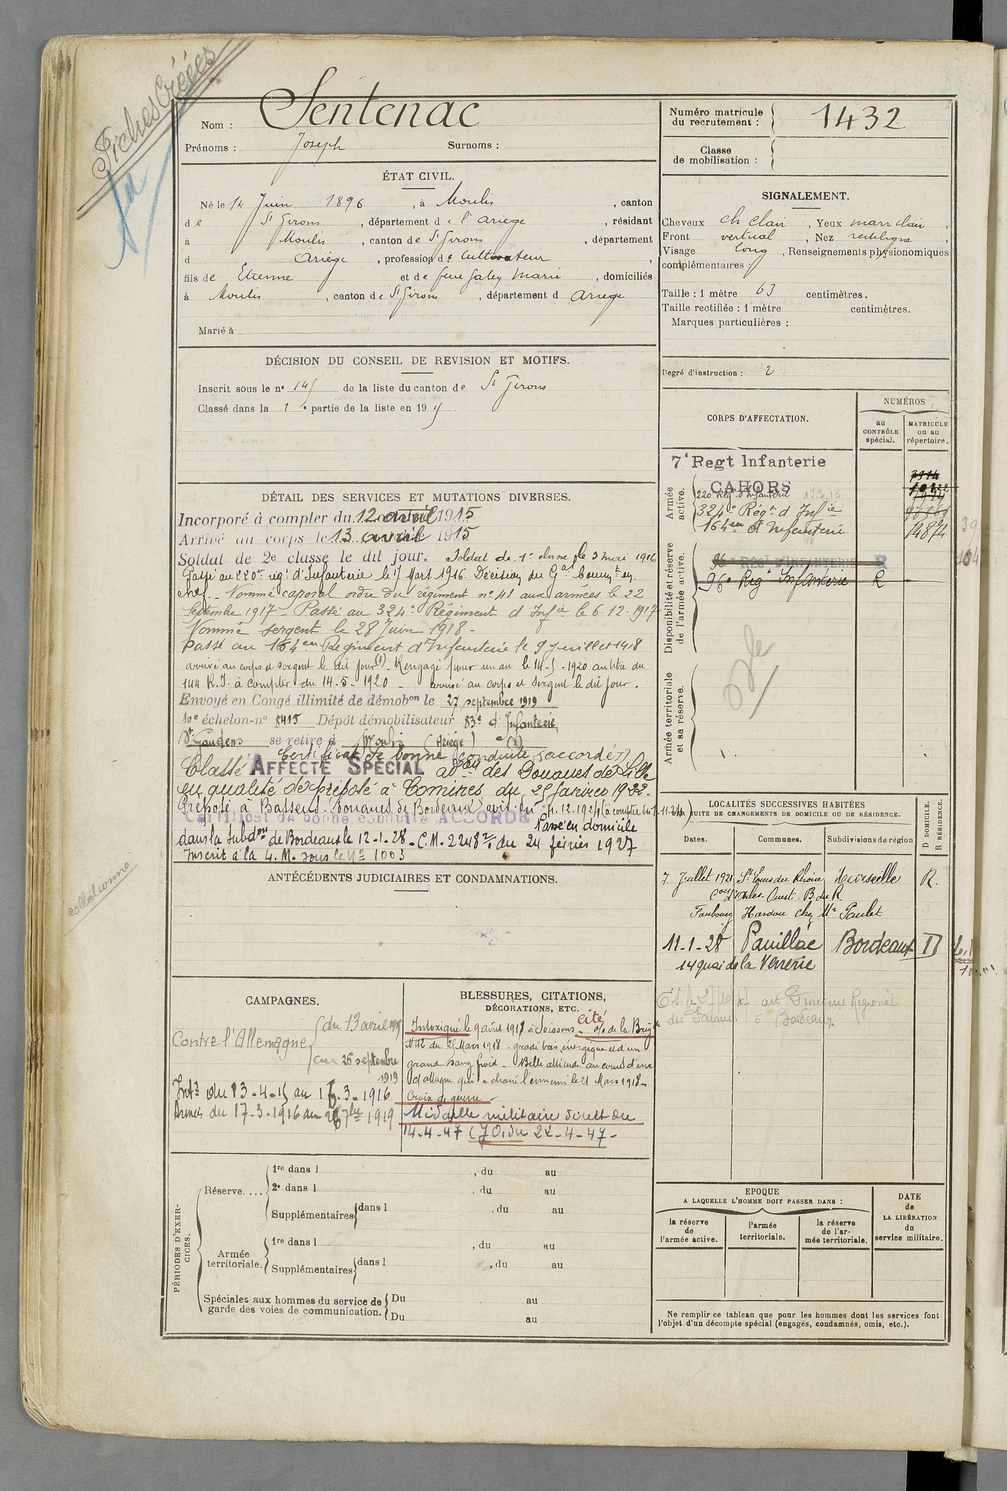 Fiches Créées
Nom : Sentenac
Prénoms : Joseph Surnoms :
Numéro matricule du recrutement : 1432
Classe de mobilisation :
ÉTAT CIVIL.
Né le 14 Juin 1896, à Moulis, canton
de St Girons, département de l'Ariège, résidant
à Moulis, canton de St Girons, département
d Ariège, profession de Cultivateur
fils de Etienne et de feue Galey Marie, domiciliés
à Moulis, canton de St Girons, département d Ariège
Marié à
SIGNALEMENT.
Cheveux ch clair, Yeux marr clair,
Front vertical, Nez rectiligne,
Visage long, Renseignements physionomiques
complémentaires :
Taille : 1 mètre 63 centimètres.
Taille rectifiée : 1 mètre centimètres.
Marques particulières :
Degré d'instruction : 2
DÉCISION DU CONSEIL DE REVISION ET MOTIFS.
Inscrit sous le n° de la liste du canton de St Girons
Classé dans la 1e partie de la liste en 19
DÉTAIL DES SERVICES ET MUTATIONS DIVERSES.
Incorporé à compter du 12 avril 1915
Arrivé au corps le 13 avril 1915
Soldat de 2e classe le dit jour. Soldat de 1e classe le 3 mai 1916
Passé au 220e rég. d'Infanterie le 17 Mars 1916. Décision du Gal Commt en
chef. Nommé caporal ordre du régiment n° 41 aux armées le 22
Septembre 1917 Passé au 324e Régiment d'Infie le 6.12.1917
Nommé sergent le 28 Juin 1918 -
Passé au 164eme Régiment d'Infanterie le 9 juillet 1918
arrivé au corps et Sergent le dit jour (1). Rengagé pour un an le 14-5-1920 au titre du
144 R.I. à compter du 14-5-1920 - arrivé au corps et Sergent le dit jour.
Envoyé en Congé illimité de démobon le 27 septembre 1919
10e échelon-n° 8415 Dépôt démobilisateur 83e d'Infanterie,
St Gaudens se retire à Moulis (Ariège) (1)
Certificat de bonne conduite "accordé"
Classé AFFECTÉ SPÉCIAL des Douanes de Lille
en qualité de préposé à Comines du 25 Janvier 1922.
Préposé à Bassens. Douanes de Bordeaux
Certificat de bonne conduite ACCORDÉ
Passé en domicile
dans la Subdon de Bordeaux le 12-1-28 - C.M. 2248 du 24 février 1927
Inscrit à la 4. M. sous le N° 1003
collationné
CORPS D'AFFECTATION.
NUMÉROS
au CONTRÔLE spécial.
MATRICULE ou au répertoire.
Armée active.
7e Regt Infanterie
CAHORS
220 Rég. d'Infanterie
324e Rég. d'Infie
164em d'Infanterie
Disponibilité et réserve de l'armée active.
96e REGt D'INFANTERIE R
96e Reg Infanterie R
Armée territoriale et sa réserve.
LOCALITÉS SUCCESSIVES HABITÉES
PAR SUITE DE CHANGEMENTS DE DOMICILE OU DE RÉSIDENCE.
Dates. Communes. Subdivisions de région
D DOMICILE. R RÉSIDENCE.
7 Juillet 1921 St Louis du Rhône Marseille R.
Faubourg Hardon chez Me Paulet
11-1-28 Pauillac Bordeaux D
14 quai de la Verrerie
ANTÉCÉDENTS JUDICIAIRES ET CONDAMNATIONS.
CAMPAGNES.
Contre l'Allemagne du 13 avril 1915
au 26 septembre 1919
Intr du 13-4-15 au 16-3-1916
Armées du 17-3-1916 au 26 7bre 1919
BLESSURES, CITATIONS, DÉCORATIONS, ETC.
Intoxiqué le 9 avril 1918 à Soissons - cité o/ de la Brig
n° 42 du Mars 1918 - gradé très énergique et d'un
grand sang froid - Belle attitude au cours d'une
attaque qui a chassé l'ennemi le 21 Mars 1918 -
Croix de guerre -
Médaille militaire décret du
14-4-47 (J.O. du 22-4-47 -
PÉRIODES D'EXERCICES.
Réserve.... 1re dans l , du au
2e dans l , du au
Supplémentaires dans l , du au
Armée territoriale. 1re dans l , du au
Supplémentaires dans l , du au
Spéciales aux hommes du service de garde des voies de communication. Du au
Du au
EPOQUE
A LAQUELLE L'HOMME DOIT PASSER DANS :
la réserve de l'armée active.
l'armée territoriale.
la réserve de l'armée territoriale.
DATE de LA LIBÉRATION du service militaire.
Ne remplir ce tableau que pour les hommes dont les services font
l'objet d'un décompte spécial (engagés, condamnés, omis, etc.).